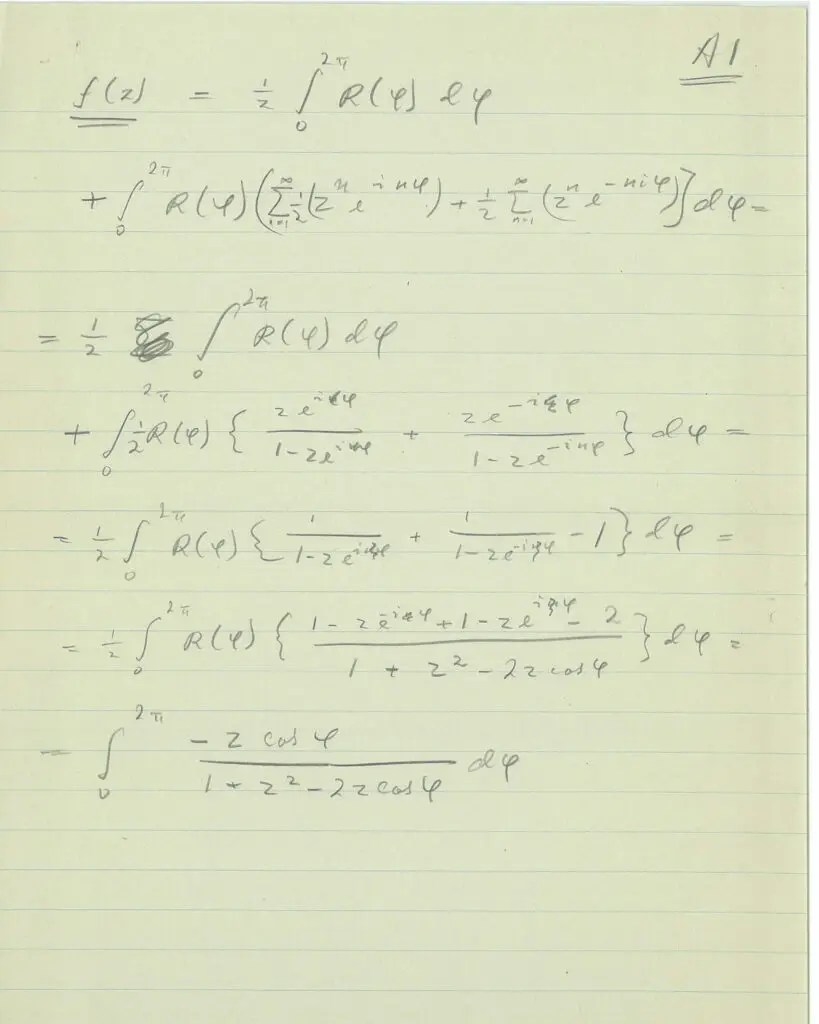 A1
f(z) = 1/2 ∫₀^{2π} R(φ) dφ
+ ∫₀^{2π} R(φ) ( ∑_{n=1}^{∞} 1/2 (z^n e^{-inφ}) + 1/2 ∑_{n=1}^{∞} (z^n e^{-niφ}) ] dφ =
= 1/2 ∫₀^{2π} R(φ) dφ
+ ∫₀^{2π} 1/2 R(φ) { z e^{iφ} / (1 - z e^{iφ}) + z e^{-iφ} / (1 - z e^{-inφ}) } dφ =
= 1/2 ∫₀^{2π} R(φ) { 1 / (1 - z e^{iφ}) + 1 / (1 - z e^{-iφ}) - 1 } dφ =
= 1/2 ∫₀^{2π} R(φ) { (1 - z e^{-iφ} + 1 - z e^{iφ} - 2) / (1 + z² - 2z cos φ) } dφ =
= ∫₀^{2π} (- z cos φ) / (1 + z² - 2z cos φ) dφ